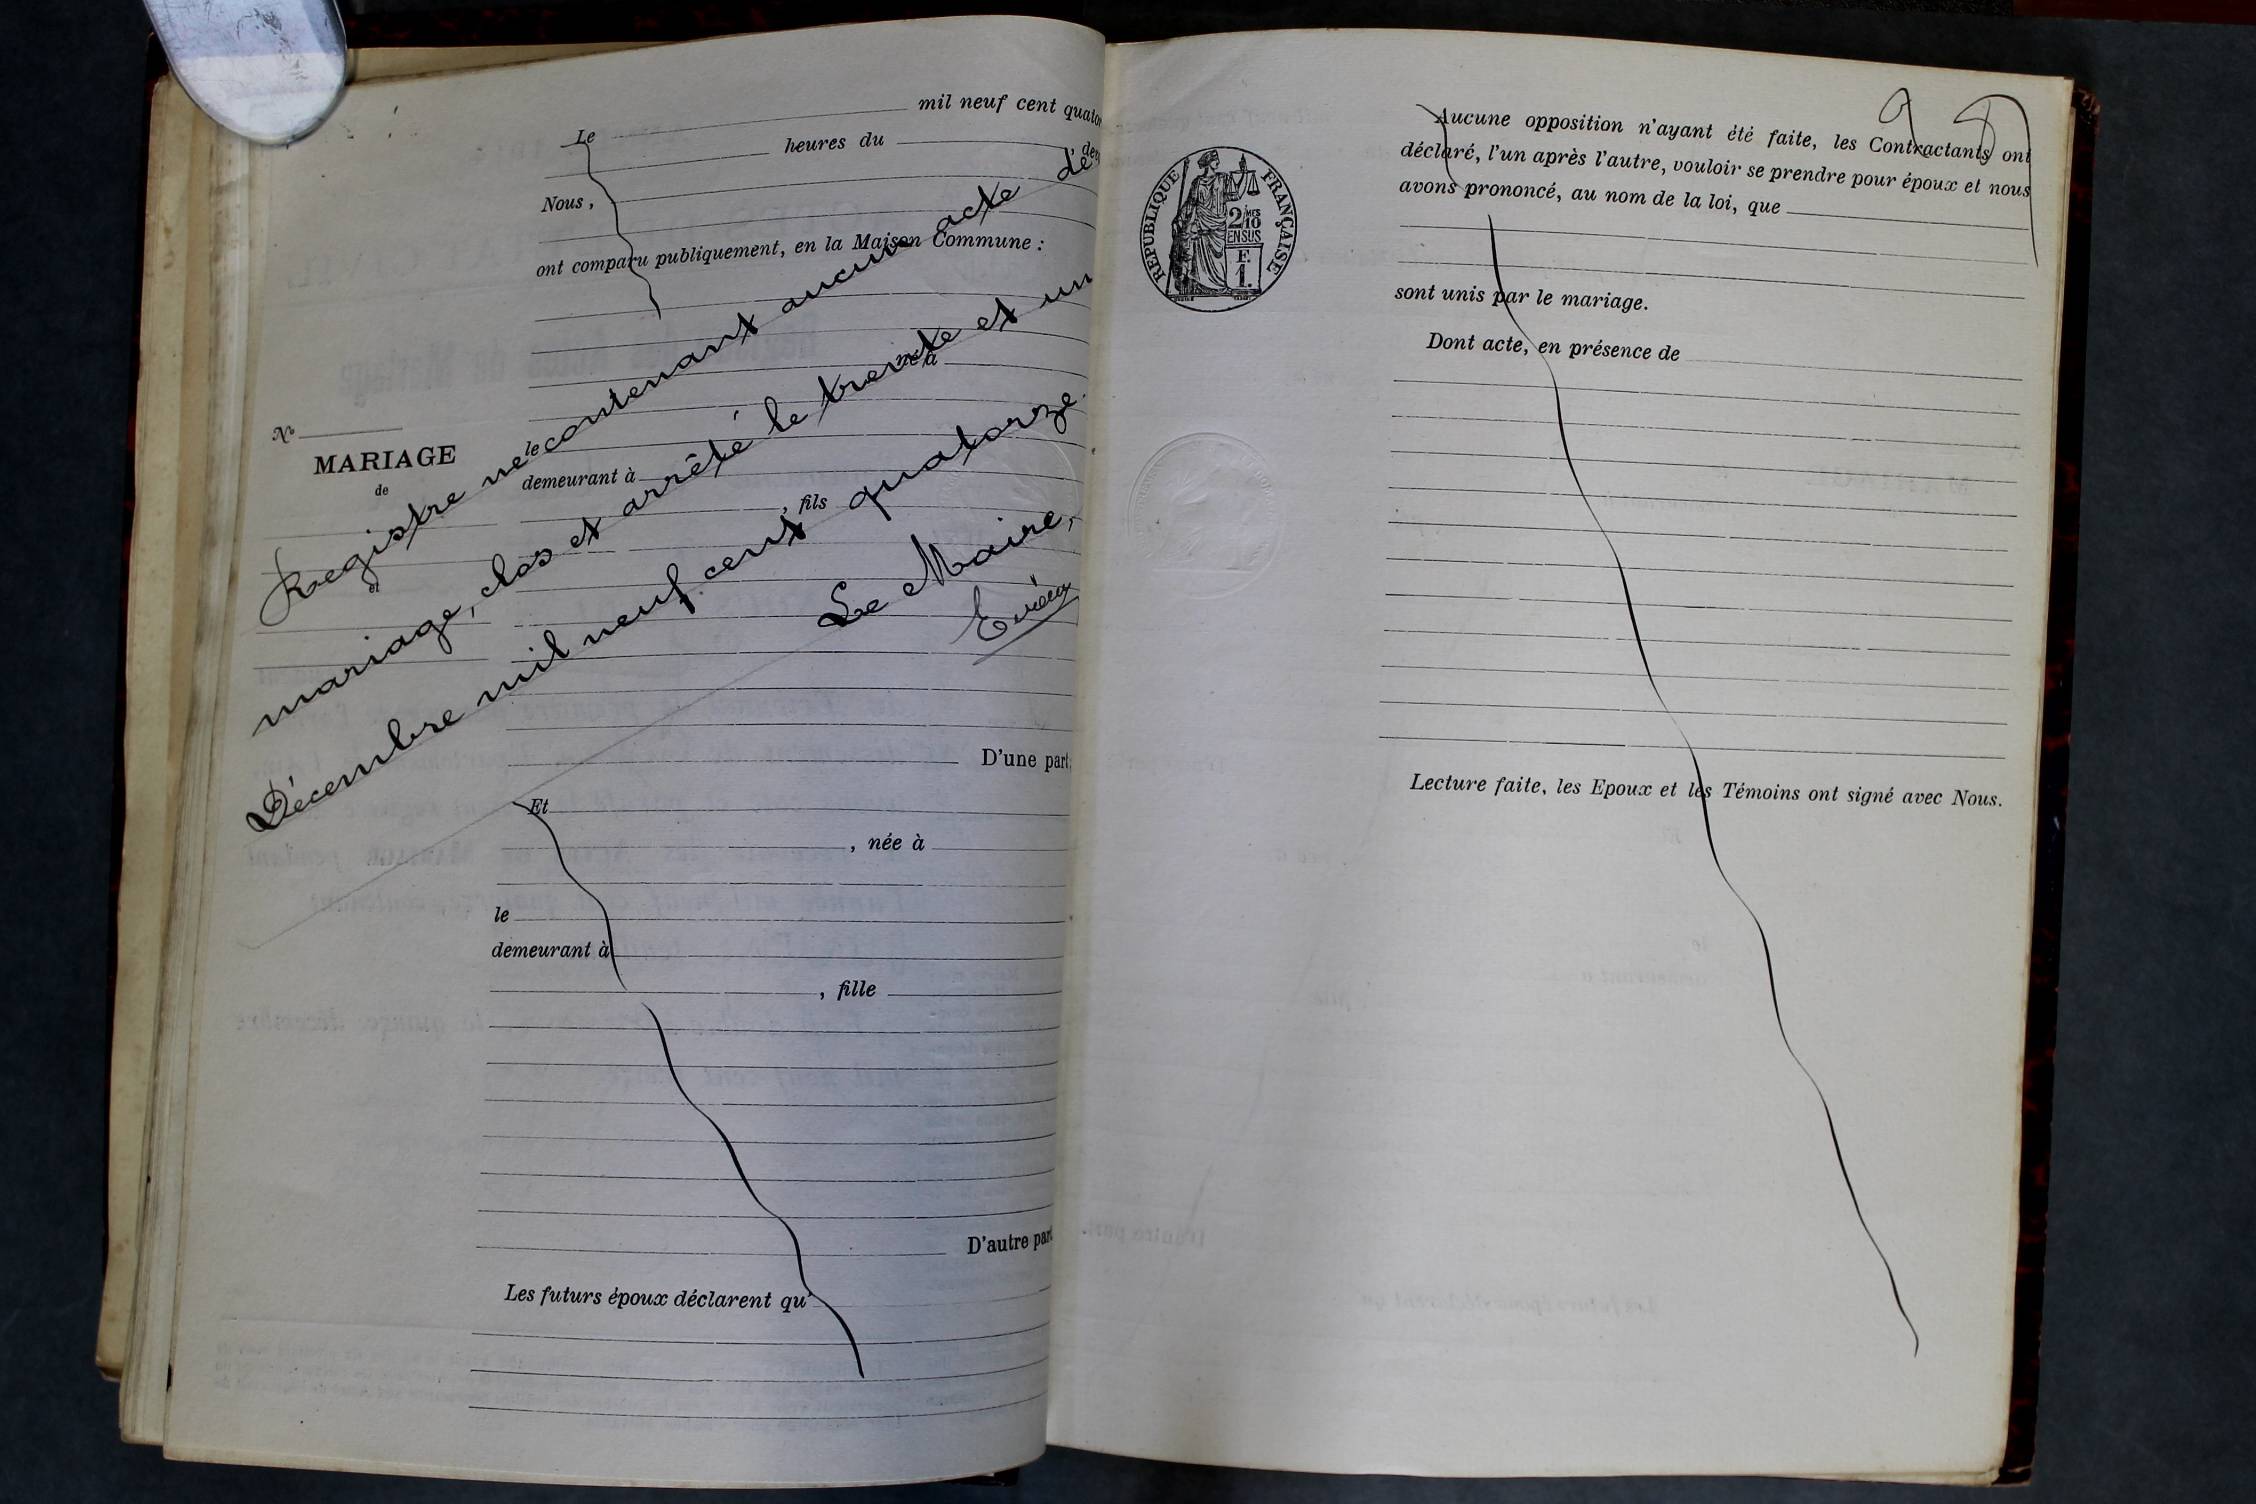 Le mil neuf cent quator
heures du
de
Nous,
ont comparu publiquement, en la Maison Commune :
né à
le
demeurant à
, fils
N°
MARIAGE
de
et
Registre ne contenant aucun acte de
mariage, clos et arrêté le trente et un
Décembre mil neuf cent quatorze.
Le Maire,
D'une part;
Et
, née à
le
demeurant à
, fille
D'autre part
Les futurs époux déclarent qu'
REPUBLIQUE FRANÇAISE
2 MES
10
EN SUS
F.
1.
Aucune opposition n'ayant été faite, les Contractants ont
déclaré, l'un après l'autre, vouloir se prendre pour époux et nous
avons prononcé, au nom de la loi, que
sont unis par le mariage.
Dont acte, en présence de
Lecture faite, les Epoux et les Témoins ont signé avec Nous.